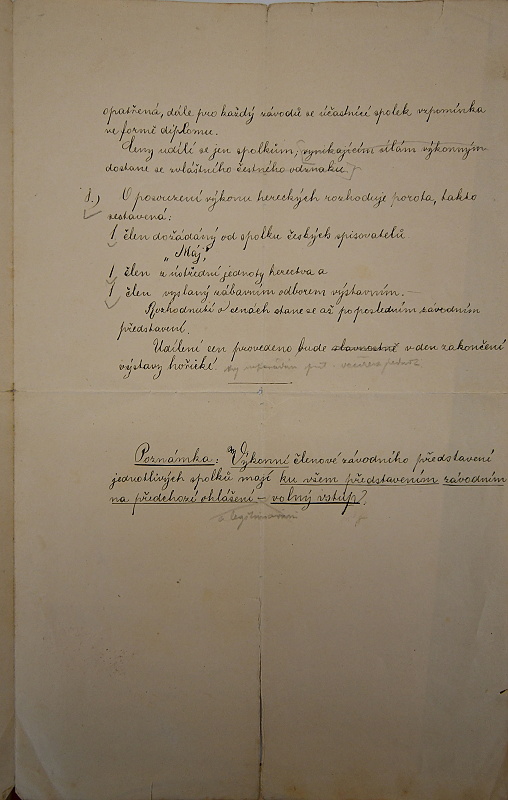 opatřená, dále pro každý závodů se účastnící spolek vzpomínka
ve formě diplomu.
Ceny udílí se jen spolkům, vynikajícím silám výkonným
dostane se zvláštního čestného odznaku.
8.) O posouzení výkonu hereckých rozhoduje porota, takto
sestavená:
1, člen dožádaný od spolku českých spisovatelů
"Máj",
1, člen z ústřední jednoty herectva a
1 člen vyslaný zábavním odborem výstavním. –
Rozhodnutí o cenách stane se až po posledním závodním
představení.
Udílení cen provedeno bude slavnostně v den zakončení
výstavy hořické
Poznámka: Výkonní členové závodního představení
jednotlivých spolků mají ku všem představením závodním
na předchozí ohlášení – volný vstup.